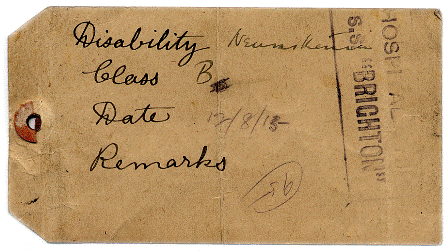 Disability Neurasthenia
Class B
Date 12/8/15
Remarks
HOSPITAL
S.S. "BRIGHTON"